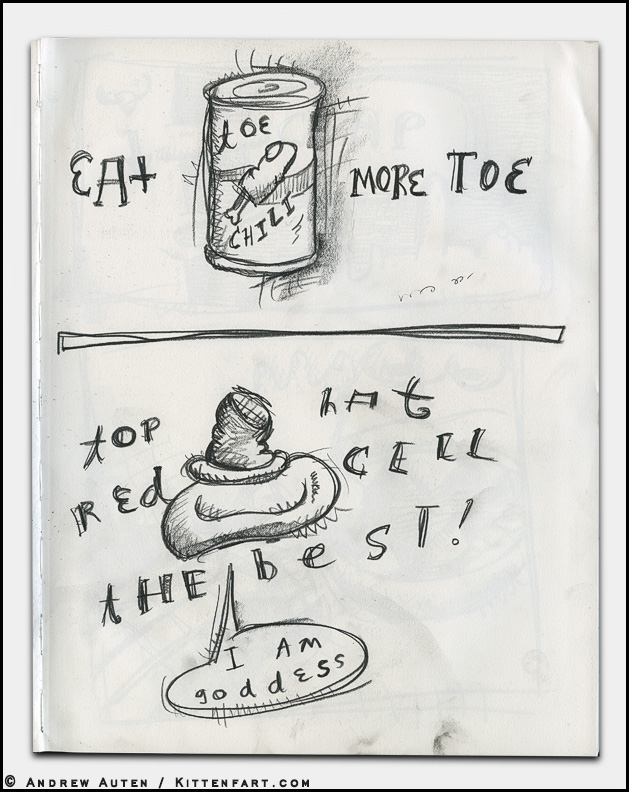 toE
CHILI
EAt MORE TOE
tOP hAt
REd CELL
tHE besT!
I AM
goddEss
© Andrew Auten / Kittenfart.com